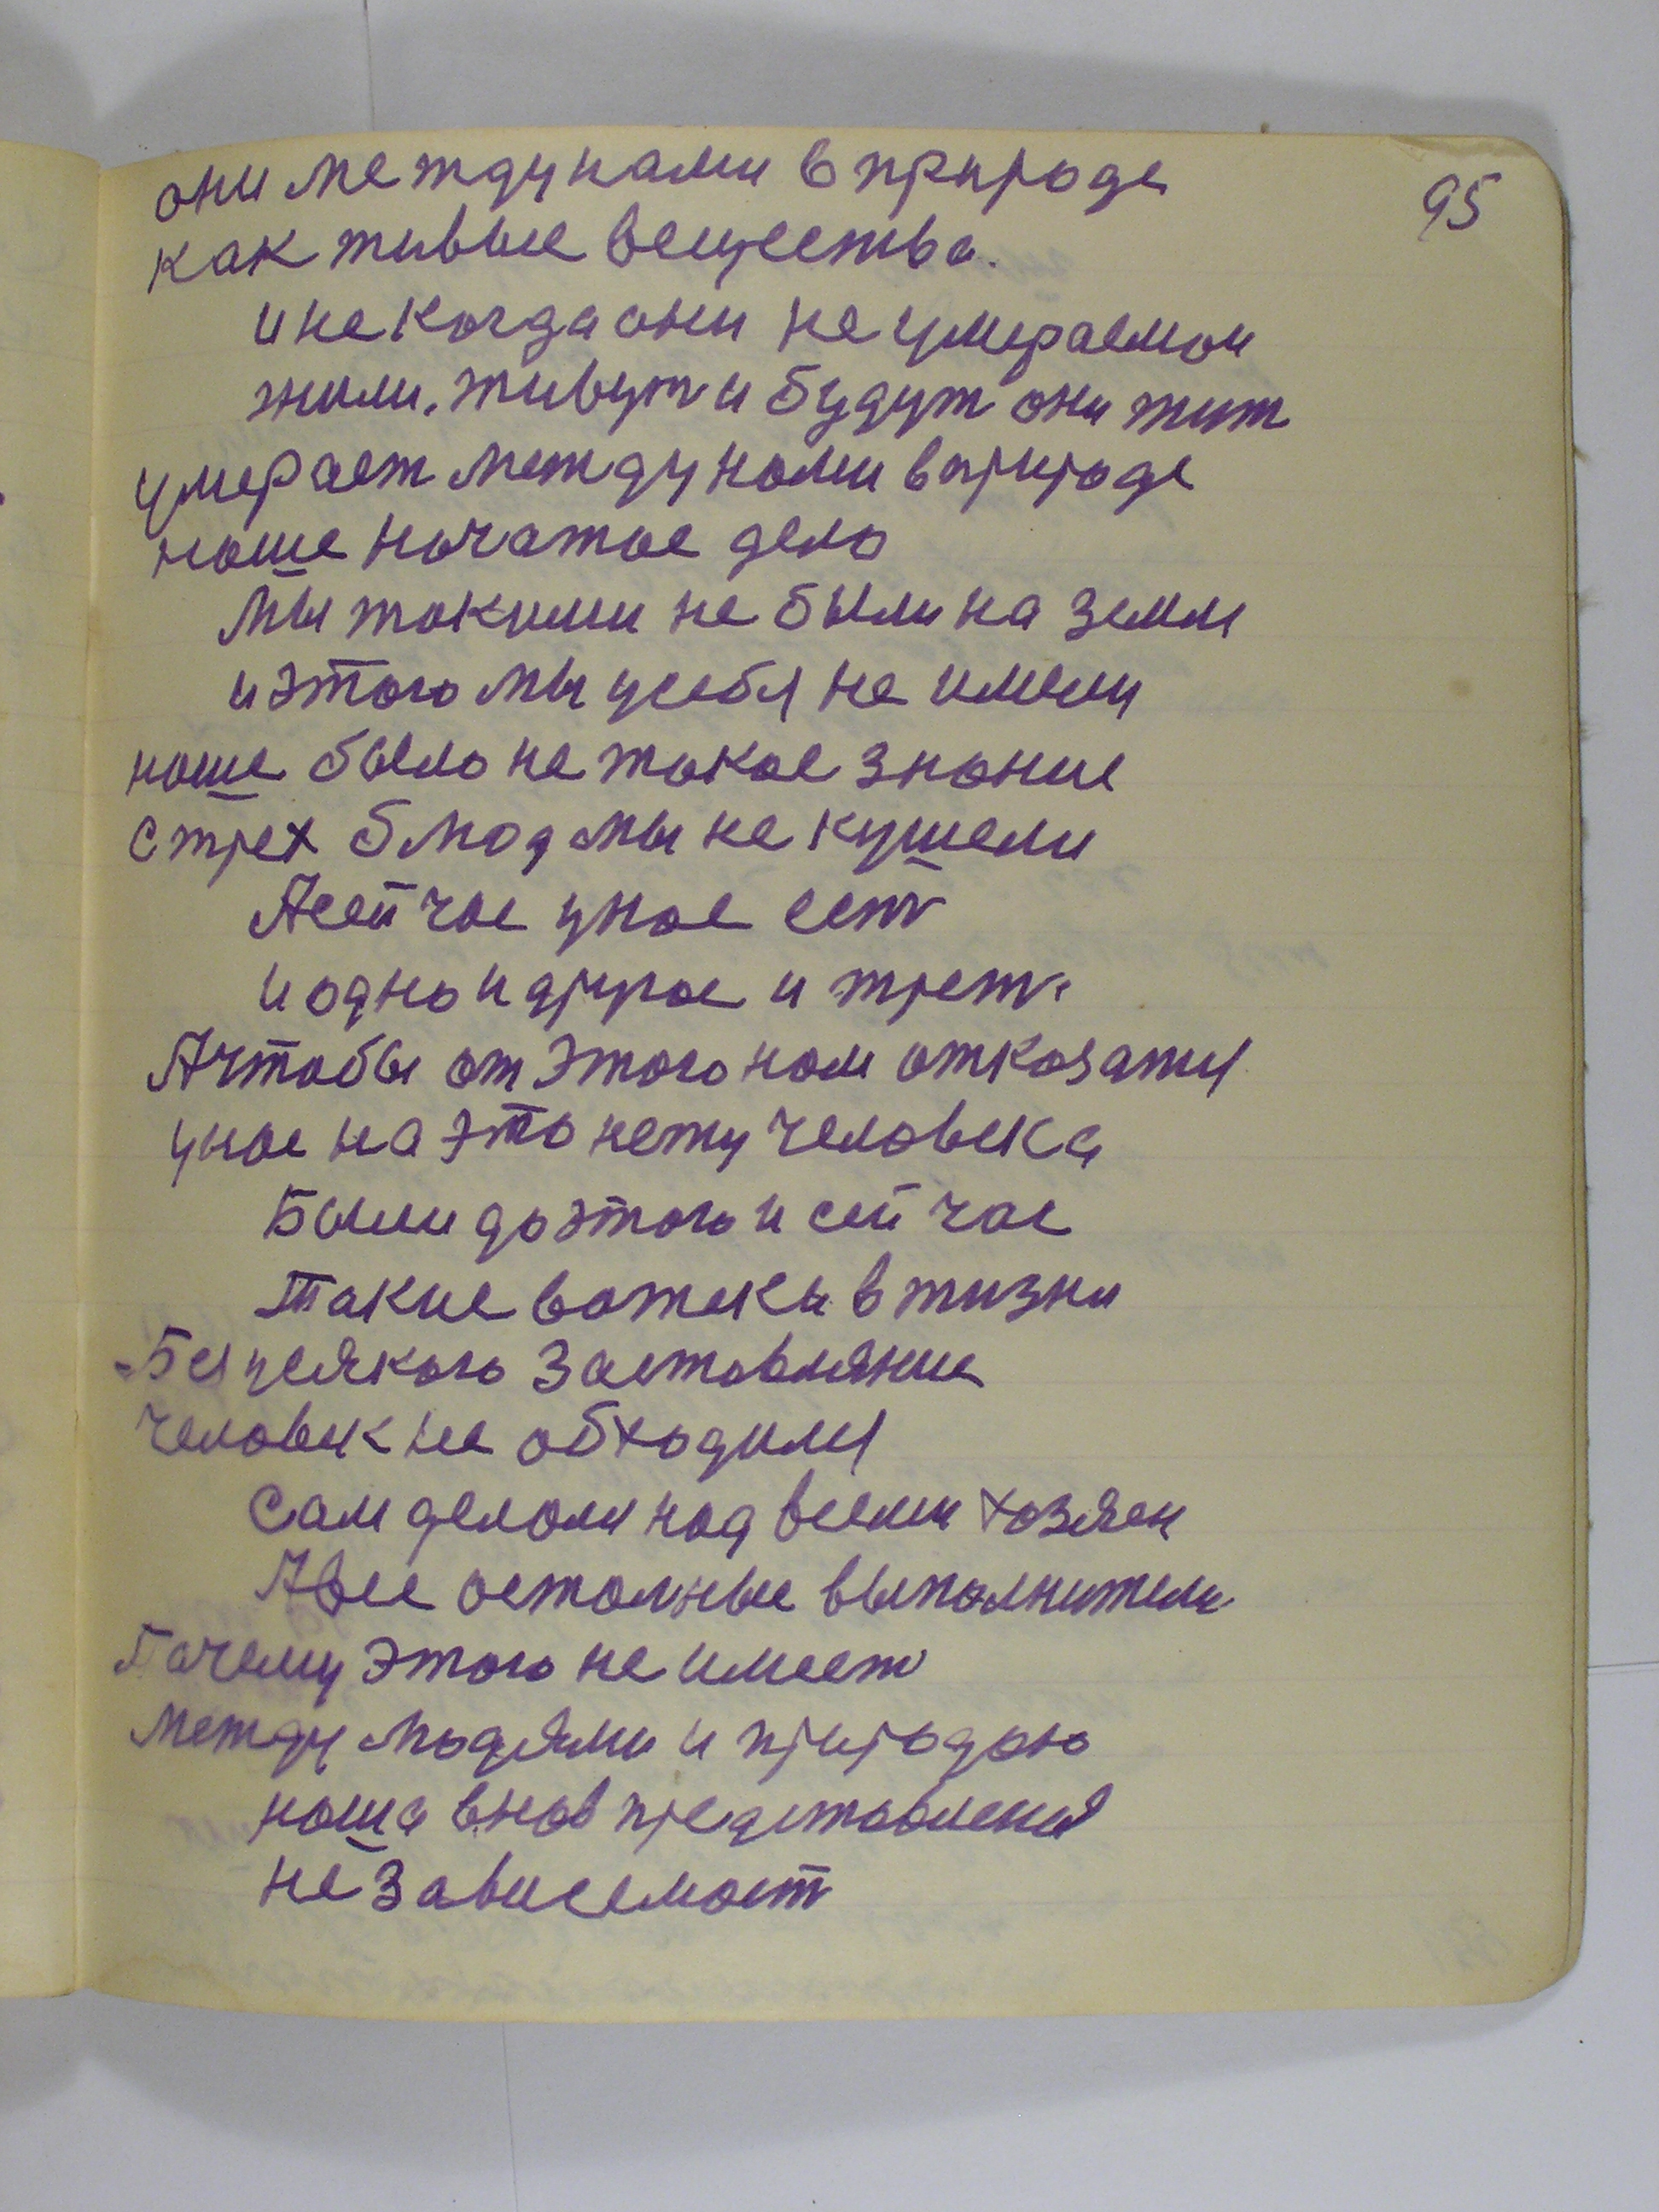 95
они между нами в природе
как живые вещества.
и не когда они не умераемои
жили. живут и будут они жит
умерает между нами в природе
наше начатое дело
мы такими не были на земли
и этого мы усебя не имели
наше было не такое знание
с трех блюд мы не кушели
А сей час унас ест
и одно и другое и трет.
А чтобы от этого нам отказатця
унас на это нету человека
Были до этого и сей час
Такиеватаки в жизни
Без усякого заставляние
человек не обходился
Сам делом над всеми хозяен
А все осталные выполнители
Почему этого не имеет
между людями и природою
наша внов представленая
не зависемост